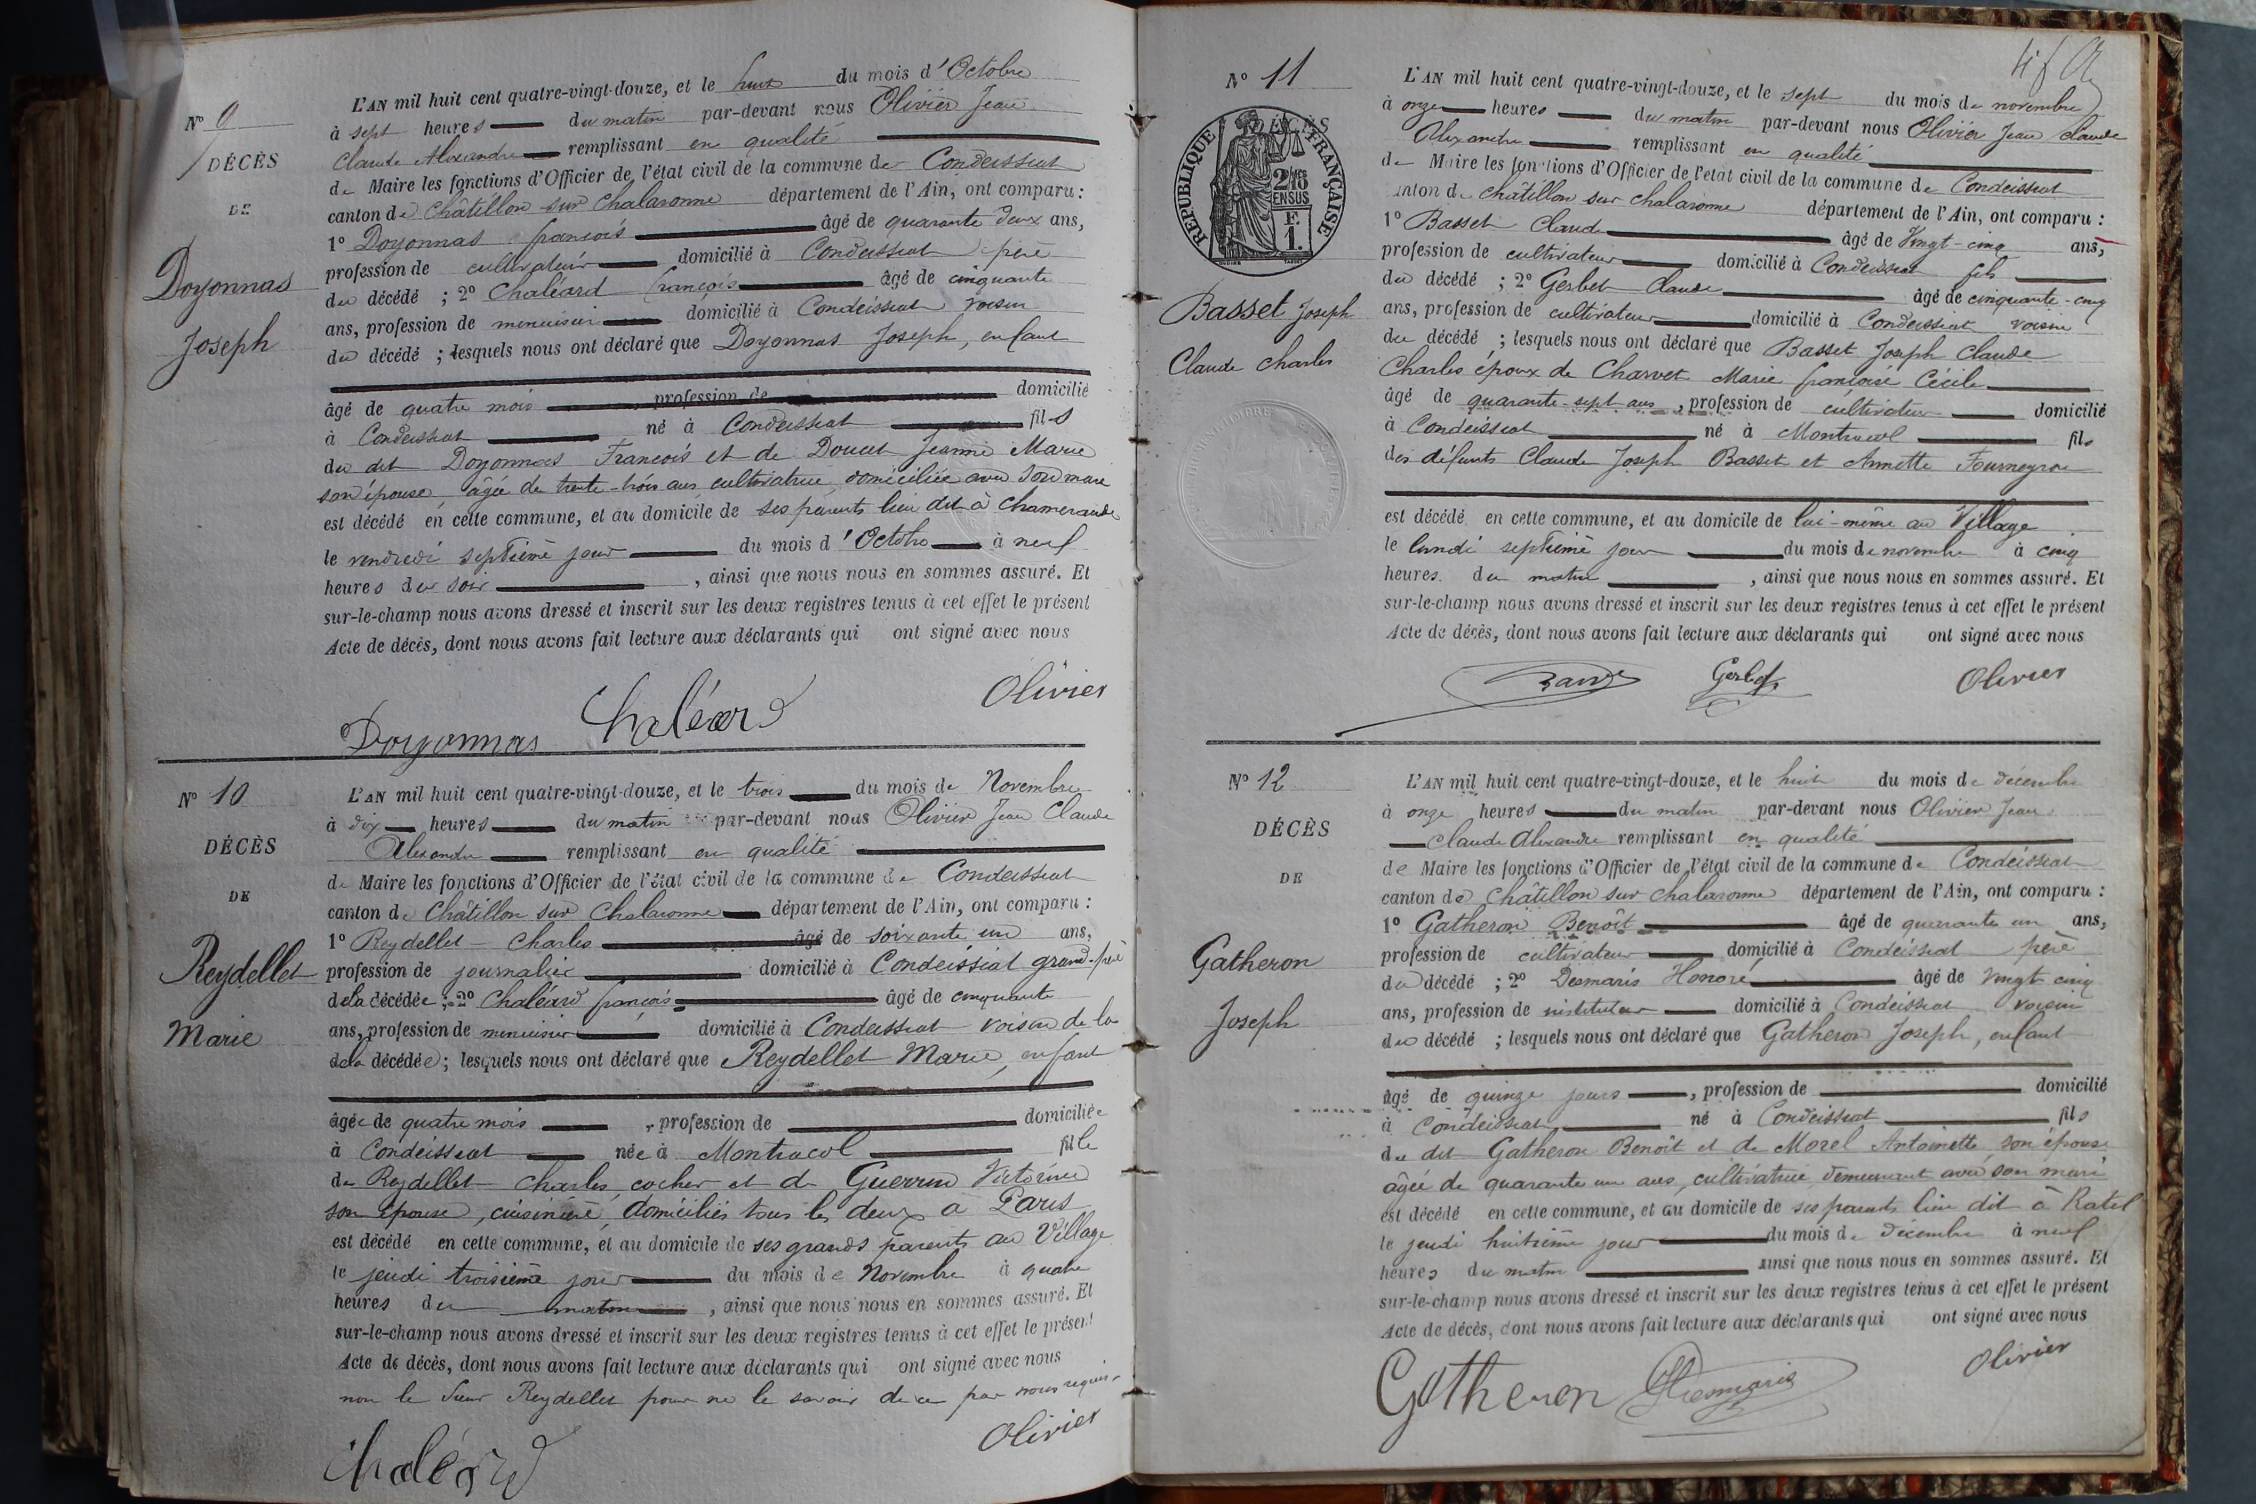 N° 9
DÉCÈS
DE
Doyonnas
Joseph
L'AN mil huit cent quatre-vingt-douze, et le huit du mois d'Octobre
à sept heures du matin par-devant nous Olivier Jean
Claude Alexandre remplissant en qualité
de Maire les fonctions d'Officier de l'état civil de la commune de Condeissiat
canton de Châtillon sur Chalaronne département de l'Ain, ont comparu :
1° Doyonnas françois âgé de quarante deux ans,
profession de cultivateur domicilié à Condeissiat père
du décédé ; 2° Chaléard françois âgé de cinquante
ans, profession de menuisier domicilié à Condeissiat voisin
du décédé ; lesquels nous ont déclaré que Doyonnas Joseph, enfant
âgé de quatre mois profession de domicilié
à Condeissiat né à Condeissiat fils
du dit Doyonnas François et de Doucet Jeanne Marie
son épouse âgée de trente-trois ans cultivatrice domiciliée avec son mari
est décédé en cette commune, et au domicile de ses parents lieu dit à Chamerande
le vendredi septième jour du mois d'Octobre à neuf
heures du soir , ainsi que nous nous en sommes assuré. Et
sur-le-champ nous avons dressé et inscrit sur les deux registres tenus à cet effet le présent
Acte de décès, dont nous avons fait lecture aux déclarants qui ont signé avec nous
Doyonnas Chaléard Olivier
N° 10
DÉCÈS
DE
Reydellet
Marie
L'AN mil huit cent quatre-vingt-douze, et le trois du mois de Novembre
à dix heures du matin par-devant nous Olivier Jean Claude
Alexandre remplissant en qualité
de Maire les fonctions d'Officier de l'état civil de la commune de Condeissiat
canton de Châtillon sur Chalaronne département de l'Ain, ont comparu :
1° Reydellet Charles âgé de soixante un ans,
profession de journalier domicilié à Condeissiat grand-père
de la décédée ; 2° Chaléard françois âgé de cinquante
ans, profession de menuisier domicilié à Condeissiat voisin de la
de la décédée ; lesquels nous ont déclaré que Reydellet Marie, enfant
âgée de quatre mois , profession de domiciliée
à Condeissiat née à Montracol fille
de Reydellet Charles, cocher et de Guerrin Victorine
son épouse, cuisinière, domiciliés tous les deux à Paris
est décédé en cette commune, et au domicile de ses grands parents au Village
le jeudi troisième jour du mois de Novembre à quatre
heures du matin , ainsi que nous nous en sommes assuré. Et
sur-le-champ nous avons dressé et inscrit sur les deux registres tenus à cet effet le présent
Acte de décès, dont nous avons fait lecture aux déclarants qui ont signé avec nous
non le sieur Reydellet pour ne le savoir de ce par nous requis.
Chaléard Olivier
N° 11
DÉCÈS
RÉPUBLIQUE FRANÇAISE
2/10es
EN SUS
F
1.
Basset Joseph
Claude Charles
L'AN mil huit cent quatre-vingt-douze, et le sept du mois de novembre
à onze heures du matin par-devant nous Olivier Jean Claude
Alexandre remplissant en qualité
de Maire les fonctions d'Officier de l'état civil de la commune de Condeissiat
canton de Châtillon sur Chalaronne département de l'Ain, ont comparu :
1° Basset Claude âgé de Vingt-cinq ans,
profession de cultivateur domicilié à Condeissiat fils
du décédé ; 2° Gerbet Claude âgé de cinquante-cinq
ans, profession de cultivateur domicilié à Condeissiat voisin
du décédé ; lesquels nous ont déclaré que Basset Joseph Claude
Charles époux de Charvet Marie françoise Cécile
âgé de quarante-sept ans , profession de cultivateur domicilié
à Condeissiat né à Montracol fils
des défunts Claude Joseph Basset et Annette Fourneyron
est décédé en cette commune, et au domicile de lui-même au Village
le lundi septième jour du mois de novembre à cinq
heures du matin , ainsi que nous nous en sommes assuré. Et
sur-le-champ nous avons dressé et inscrit sur les deux registres tenus à cet effet le présent
Acte de décès, dont nous avons fait lecture aux déclarants qui ont signé avec nous
Gerbet Olivier
N° 12
DÉCÈS
DE
Gatheron
Joseph
L'AN mil huit cent quatre-vingt-douze, et le huit du mois de décembre
à onze heures du matin par-devant nous Olivier Jean
Claude Alexandre remplissant en qualité
de Maire les fonctions d'Officier de l'état civil de la commune de Condeissiat
canton de Châtillon sur Chalaronne département de l'Ain, ont comparu :
1° Gatheron Benoît âgé de quarante un ans,
profession de cultivateur domicilié à Condeissiat père
du décédé ; 2° Desmaris Honoré âgé de vingt cinq
ans, profession de instituteur domicilié à Condeissiat voisin
du décédé ; lesquels nous ont déclaré que Gatheron Joseph, enfant
âgé de quinze jours , profession de domicilié
à Condeissiat né à Condeissiat fils
du dit Gatheron Benoît et de Morel Antoinette son épouse
âgée de quarante un ans, cultivatrice demeurant avec son mari
est décédé en cette commune, et au domicile de ses parents lieu dit à Ratel
le jeudi huitième jour du mois de décembre à neuf
heures du matin ainsi que nous nous en sommes assuré. Et
sur-le-champ nous avons dressé et inscrit sur les deux registres tenus à cet effet le présent
Acte de décès, dont nous avons fait lecture aux déclarants qui ont signé avec nous
Gatheron HDesmaris Olivier